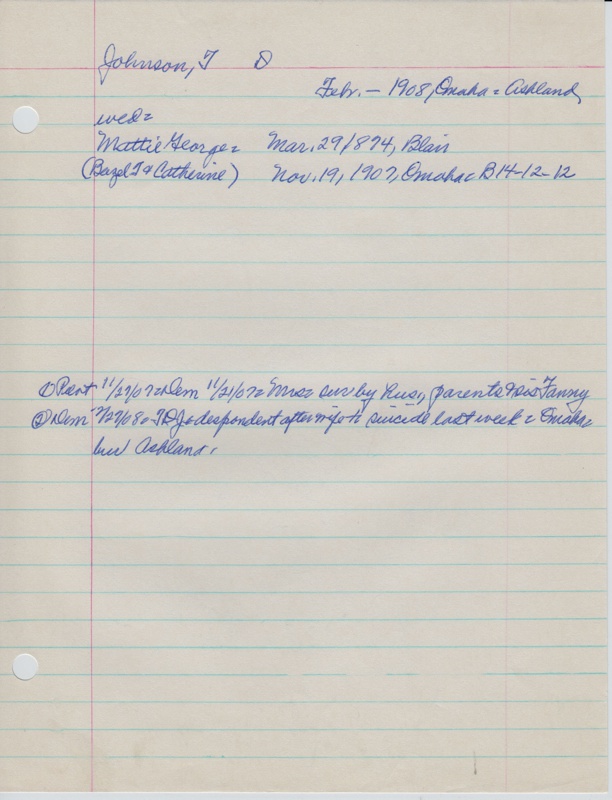 Johnson, T D
Febr. – 1908, Omaha = Ashland,
wed =
Mattie George = Mar. 29 1874, Blair
(Bazel T & Catherine) Nov. 19, 1907, Omaha = B 14-12-12
① 11/27/07 = Dem 11/21/07 = Mrs = sur by hus, parents & sis Fanny
② Dem 2/27/08 = TDJ = despondent after wife's suicide last week = Omaha =
bur Ashland.